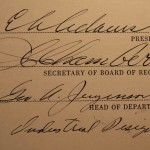 E A Adams
PRES
SECRETARY OF BOARD OF REC
Geo. A. Jergenson
HEAD OF DEPAR
Industrial Desig